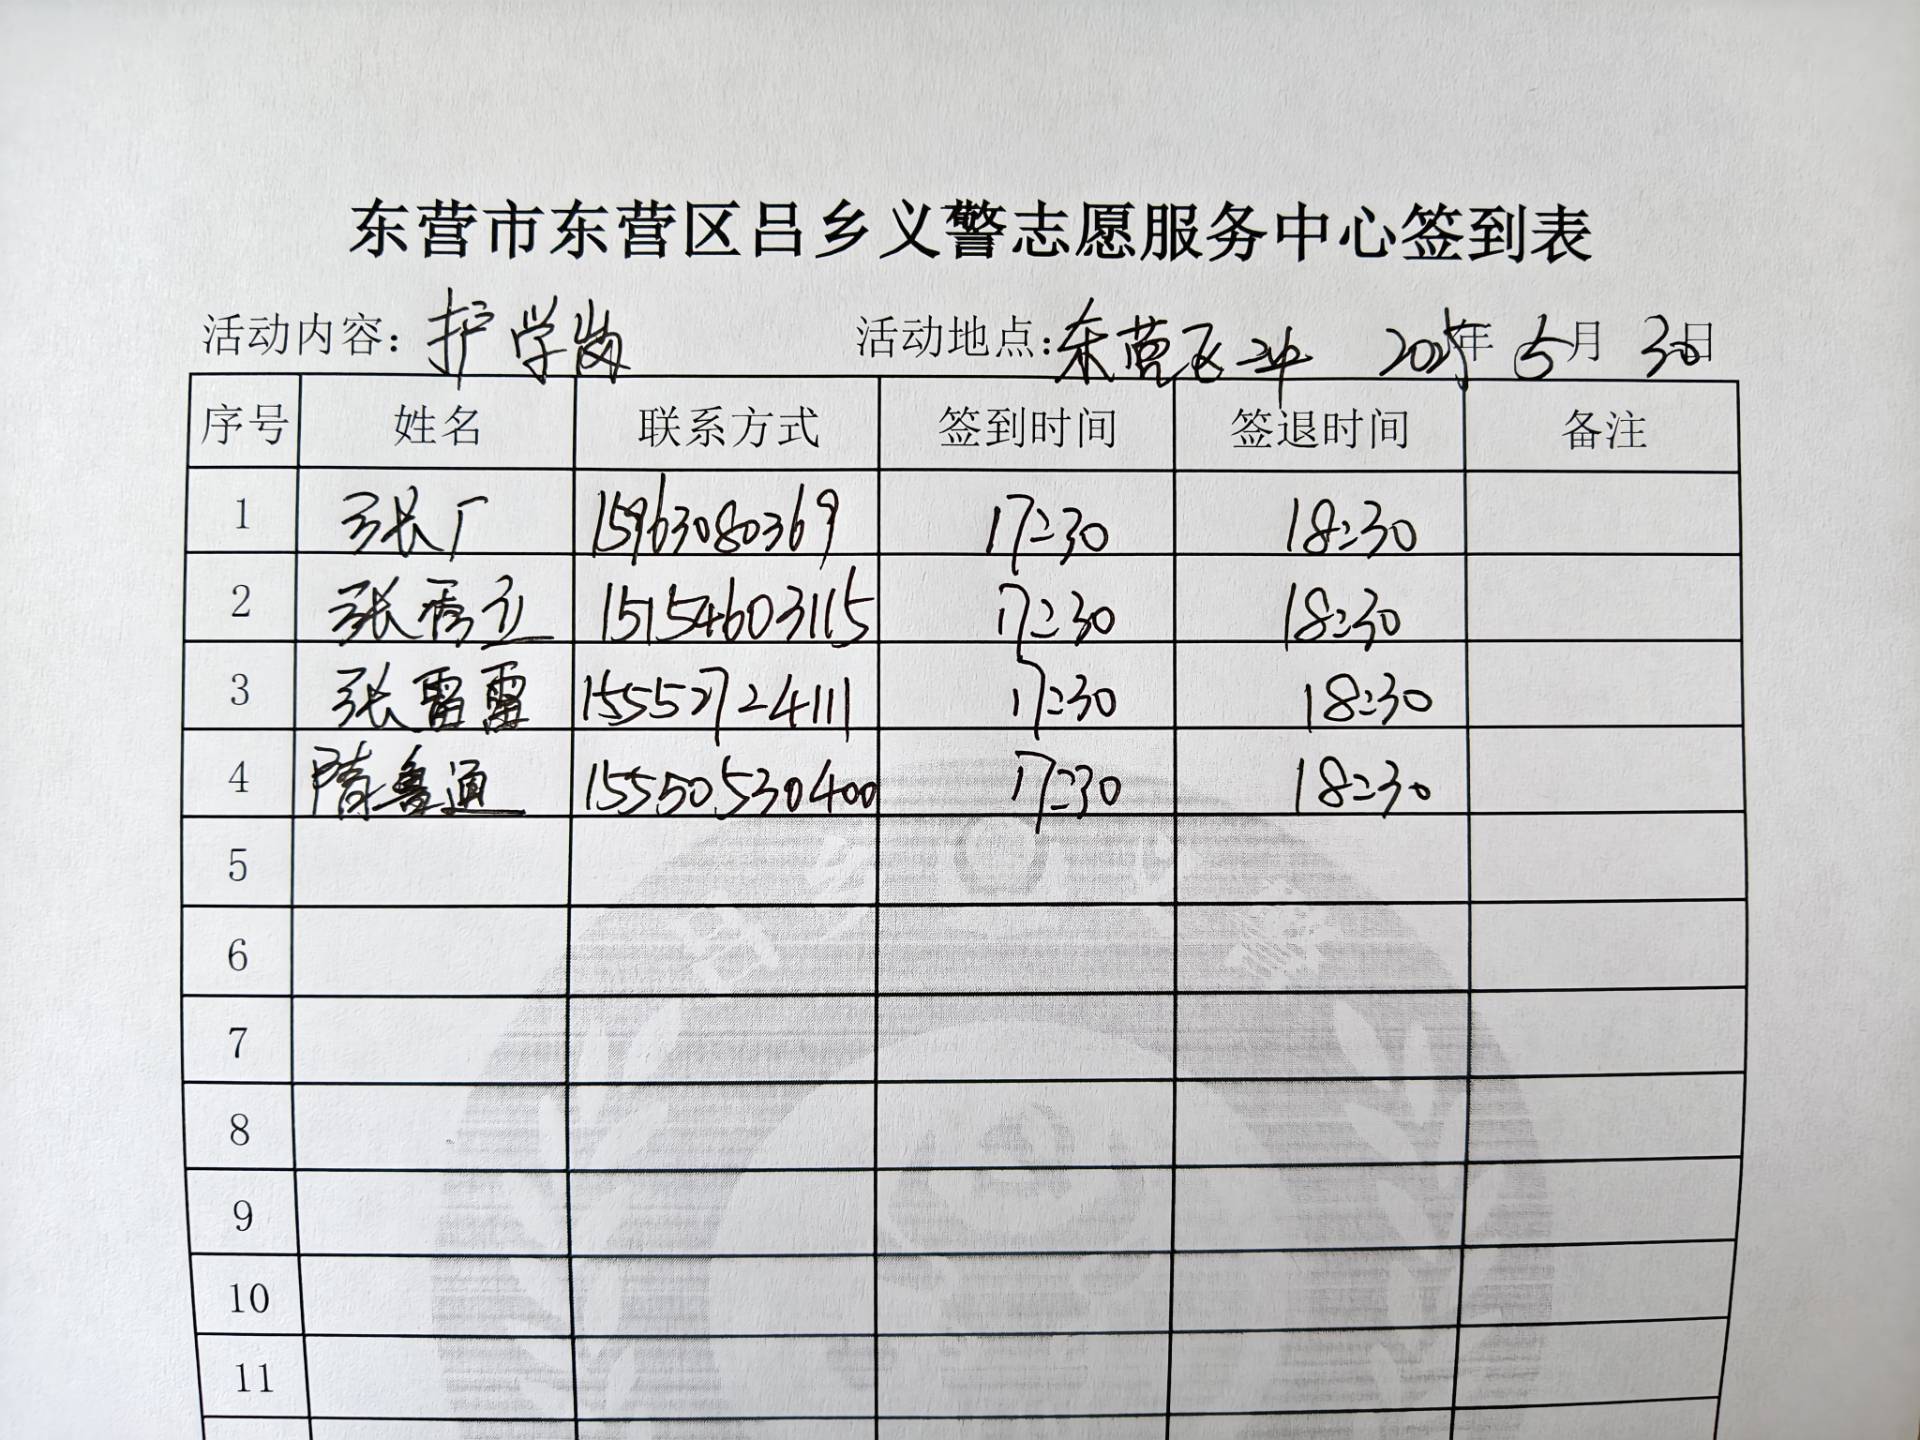 东营市东营区吕乡义警志愿服务中心签到表
活动内容：护学岗 活动地点：东营区二中 2025年 5月 30日
序号 姓名 联系方式 签到时间 签退时间 备注
1 张广 15963080369 17:30 18:30
2 张秀立 15154603115 17:30 18:30
3 张雷雷 15552724111 17:30 18:30
4 隋鲁通 15550530400 17:30 18:30
5
6
7
8
9
10
11